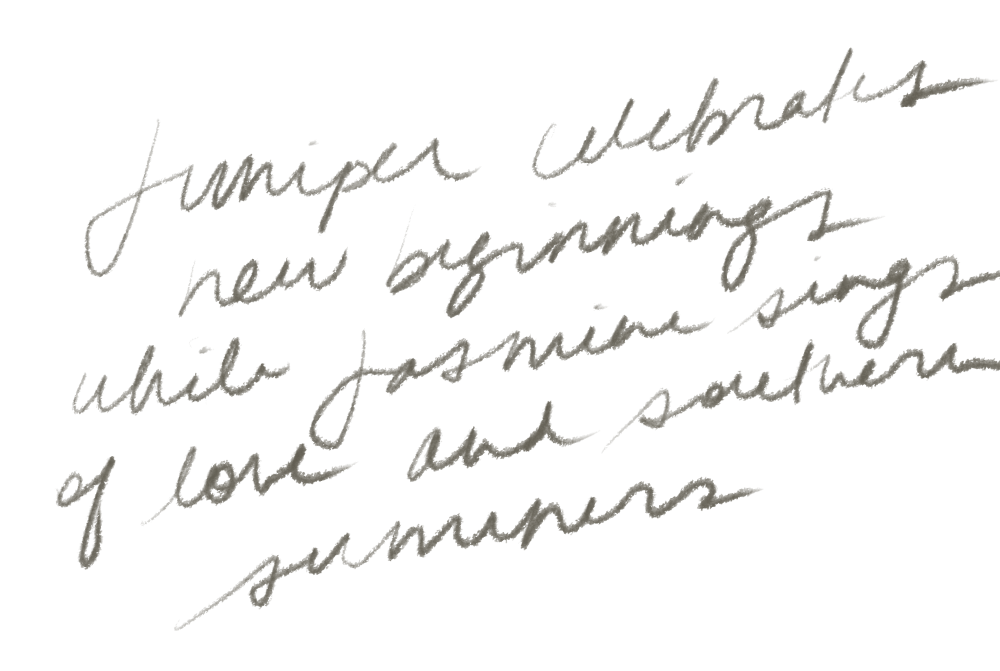 Juniper celebrates
new beginnings
while Jasmine sings
of love and southern
summers